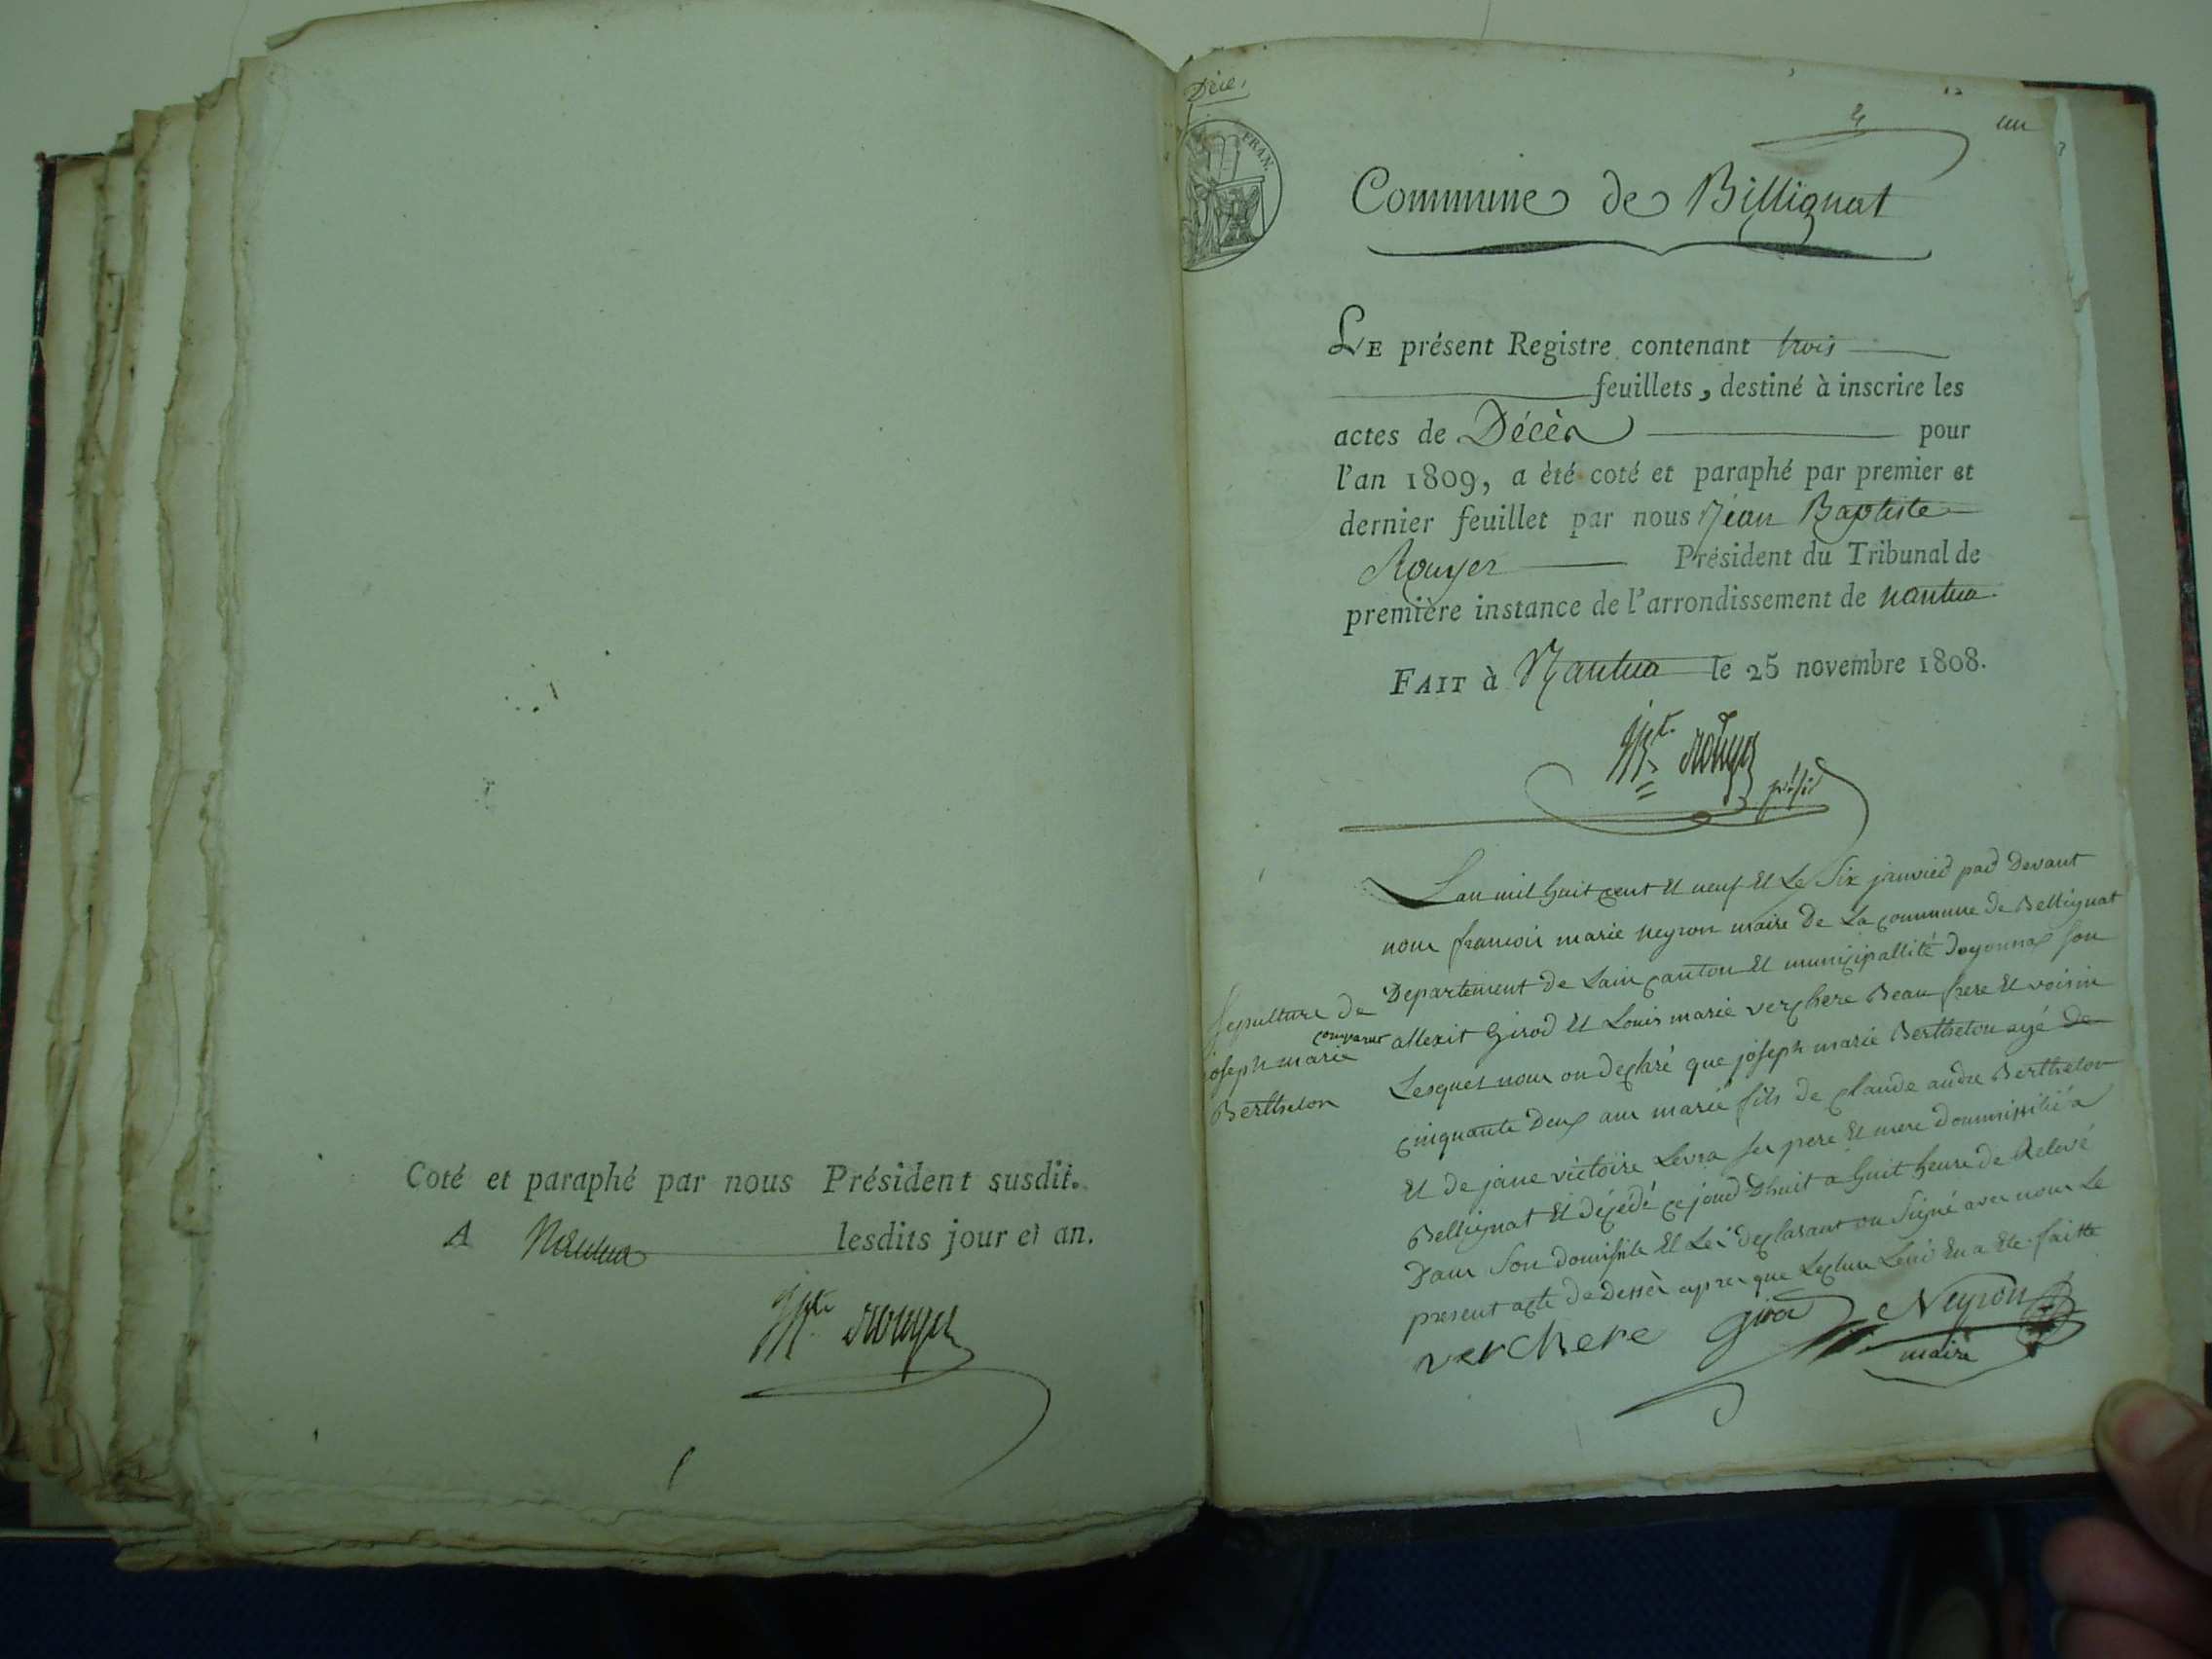 Coté et paraphé par nous Président susdit.
A Nantua lesdits jour et an.
Rouyer
Décè,
FRAN.
un
Commune de Billignat
LE présent Registre contenant trois
feuillets, destiné à inscrire les
actes de Décès pour
l'an 1809, a été coté et paraphé par premier et
dernier feuillet par nous Jean Baptiste
Rouyer Président du Tribunal de
première instance de l'arrondissement de nantua
FAIT à Nantua le 25 novembre 1808.
Rouyer
présid
Sepulture de
joseph marie
Berthelon
Lan mil huit cent et neuf et Le Six janvier par Devant
nous francois marie neyron maire De La commune de Bellignat
Departement de Lain canton Et municipallité doyonnax son
comparut allexit Girod Et Louis marie verchere Beau frere Et voisin
Lesquels nous on declaré que joseph marie Berthelon agé de
cinquante Deux ans marié fils de claude andre Berthelon
Et de jane victoire Levra ses pere Et mere dommissilié a
Bellignat Et décédé ce jourd'huit a huit heure de Relevé
Dans Son domisile Et Les declarant on Signé avec nous Le
present acte de Dessès apres que Lecture Leur En a Ete faitte
verchere girod Neyron
maire